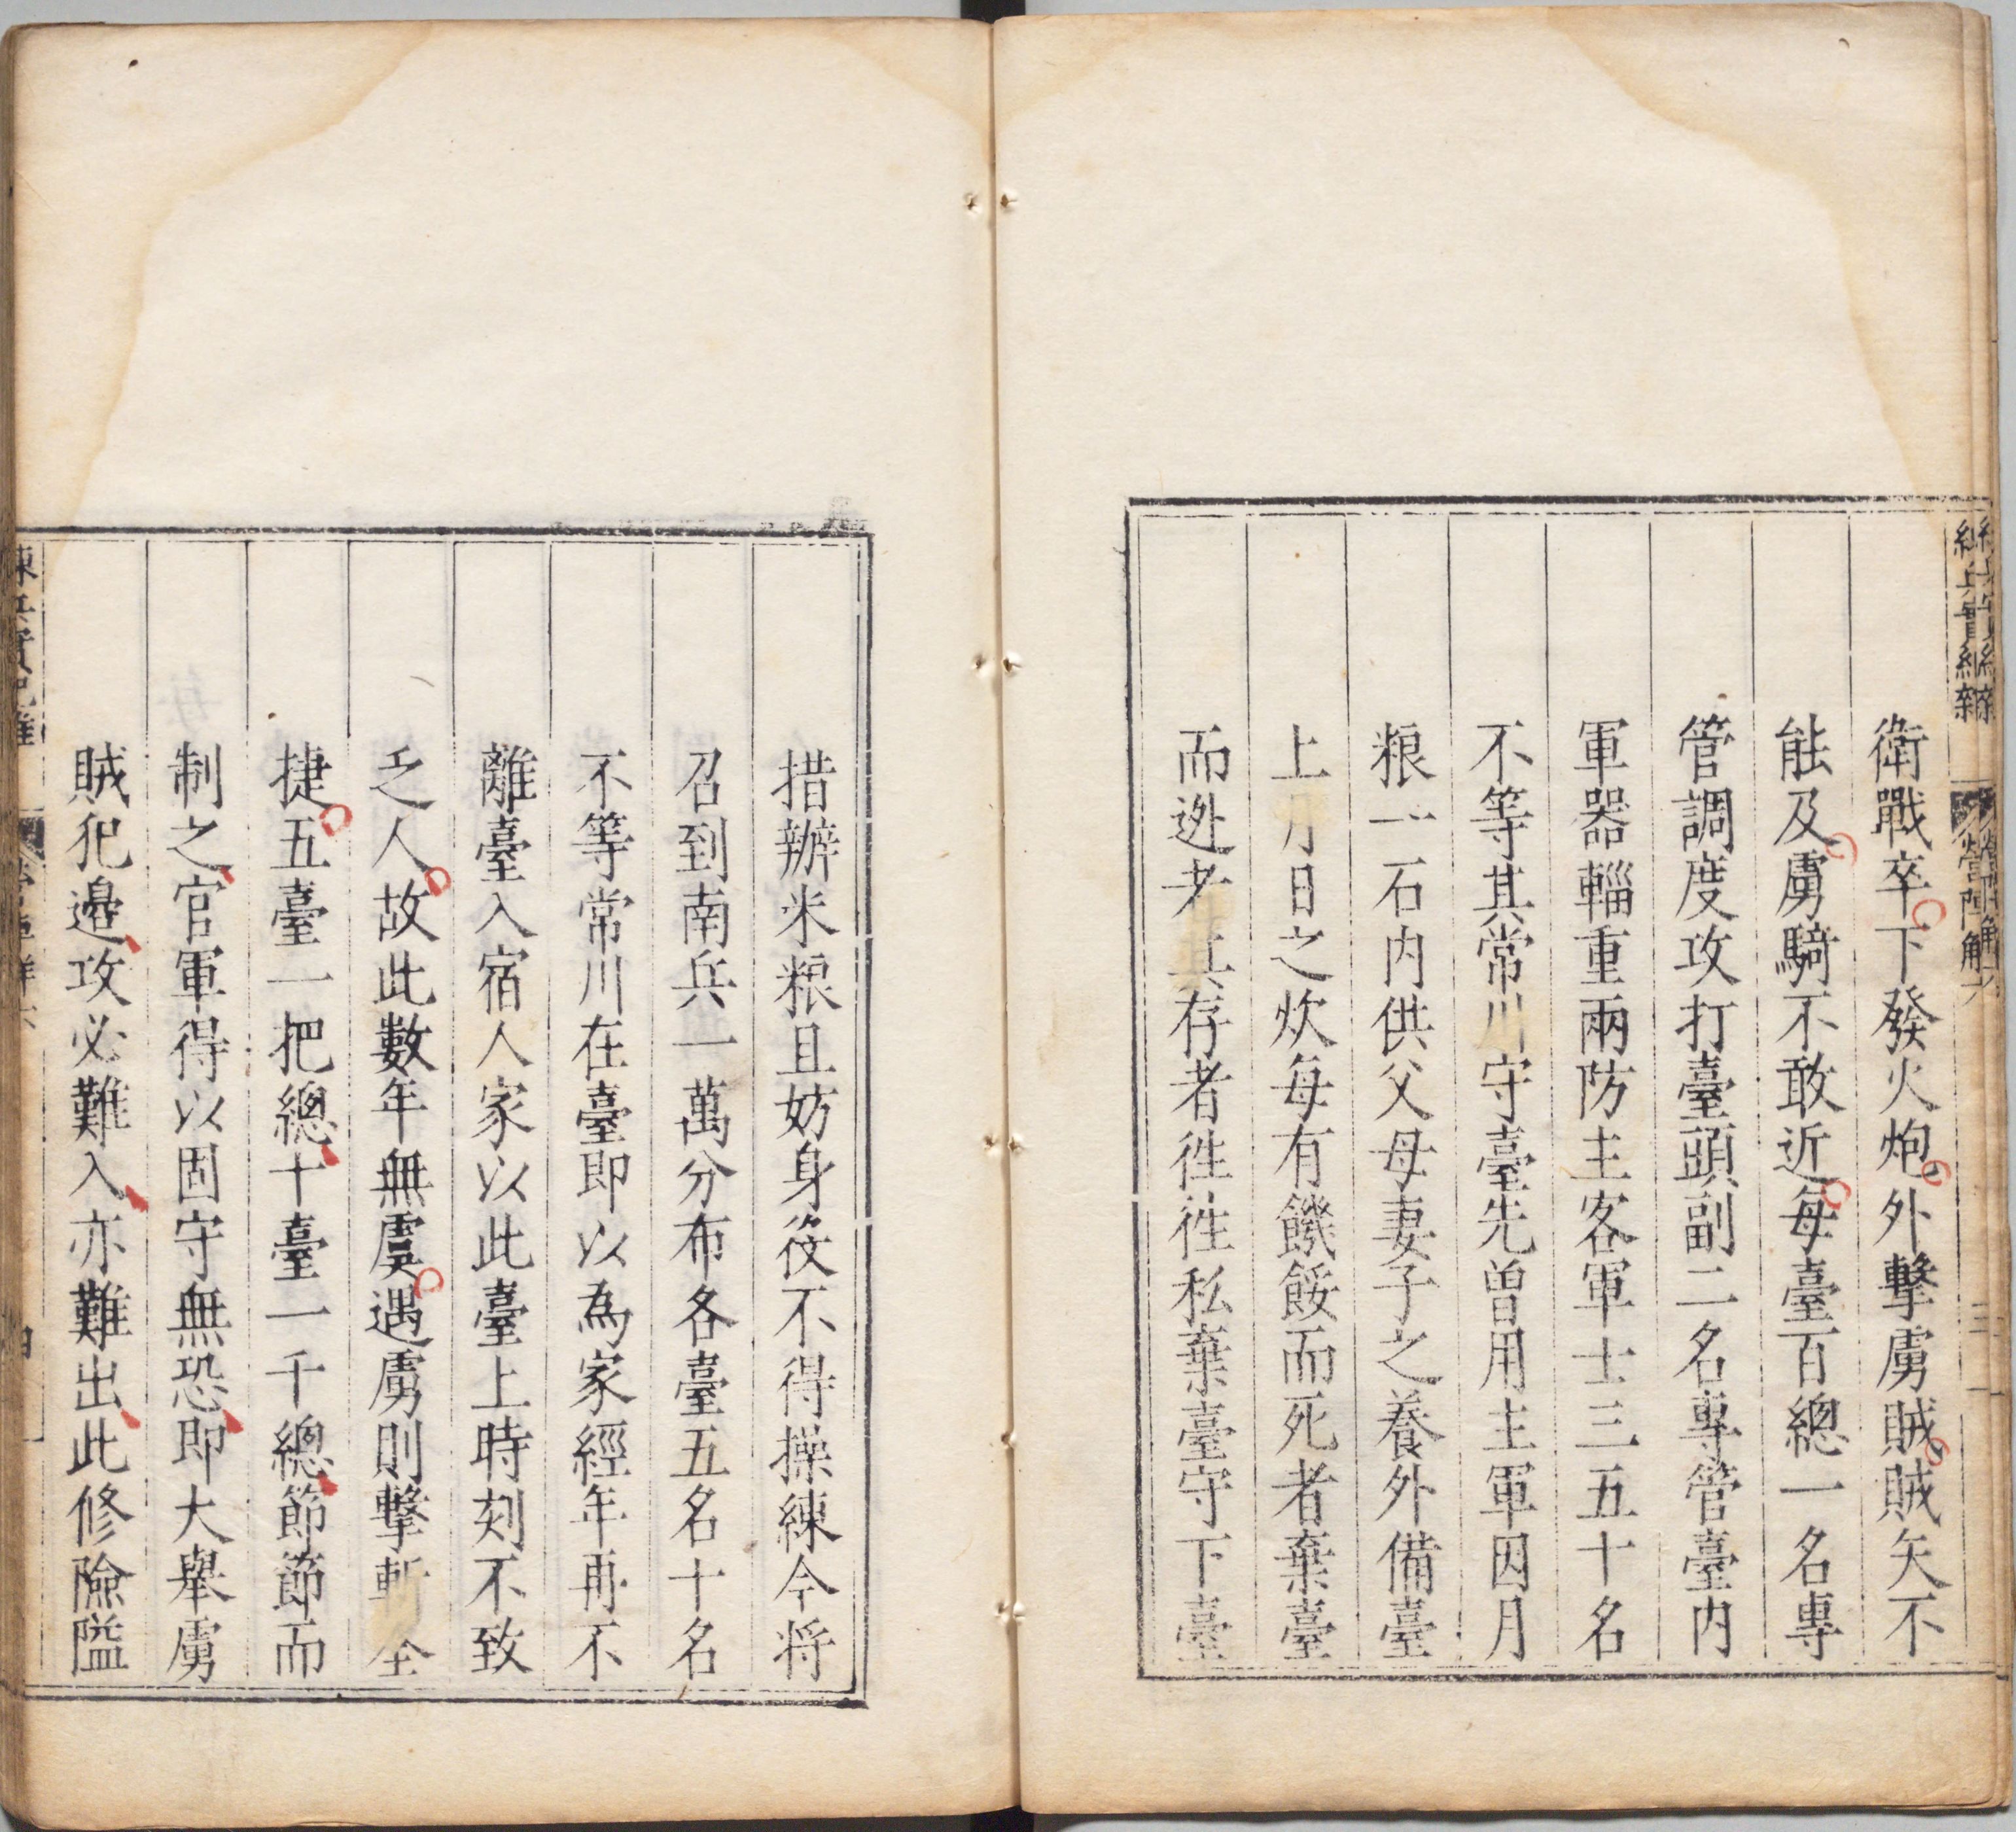 衛戰卒下發火炮外擊虜賊賊矢不
能及虜騎不敢近每臺百總一名專
管調度攻打臺頭副二名專管臺内
軍器輜重兩防主客軍士三五十名
不等其常川守臺先曾用主軍因月
粮一石内供父母妻子之養外備臺
上月日之炊每有饑餒而死者棄臺
而迯者其存者徃徃私棄臺守下臺
措辦米粮且妨身役不得操練今將
召到南兵一萬分布各臺五名十名
不等常川在臺即以為家經年再不
離臺入宿人家以此臺上時刻不致
乏人故此數年無虞遇虜則擊斬全
捷五臺一把總十臺一千總節節而
制之官軍得以固守無恐即大舉虜
賊犯邊攻必難入亦難出此修險隘